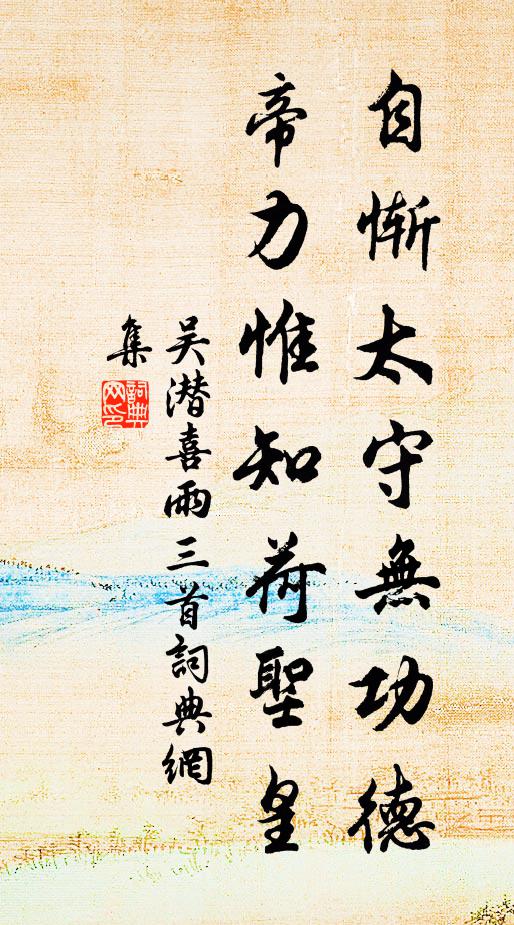 自慚太守無功德
帝力惟知荷聖皇
吴潜喜雨三首詞典網
集
詞典
网